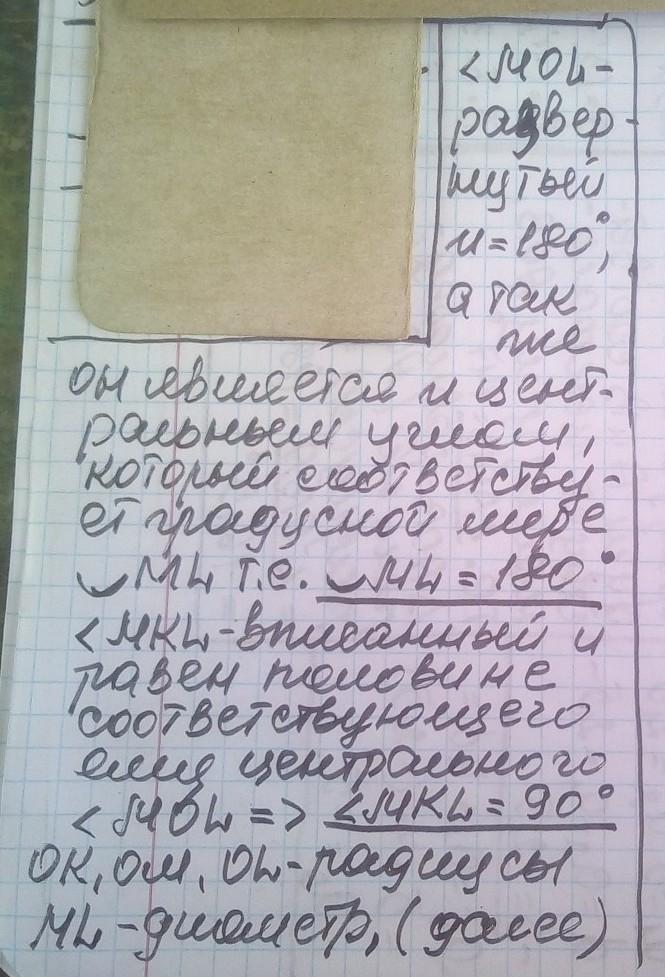 <MOL-
развер-
нутый
и=180°,
а так
же
он является и цент-
ральным углом,
который соответству-
ет градусной мере
◡ML т.е. ◡ML = 180°
<MKL-вписанный и
равен половине
соответствующего
ему центрального
<MOL => ∠MKL = 90°
OK, OM, OL-радиусы
ML-диаметр, (далее)